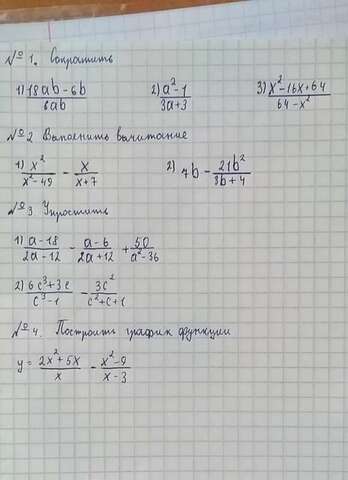 № 1. Сократить
1) 18ab - 6b / 6ab 2) a² - 1 / 3a + 3 3) x² - 16x + 64 / 64 - x²
№ 2 Выполнить вычитание
1) x² / x² - 49 - x / x + 7 2) 7b - 21b² / 3b + 4
№ 3 Упростить
1) a - 18 / 2a - 12 - a - 6 / 2a + 12 + 50 / a² - 36
2) 6c³ + 3c / c³ - 1 - 3c² / c² + c + 1
№ 4. Построить график функции
y = 2x² + 5x / x - x² - 9 / x - 3